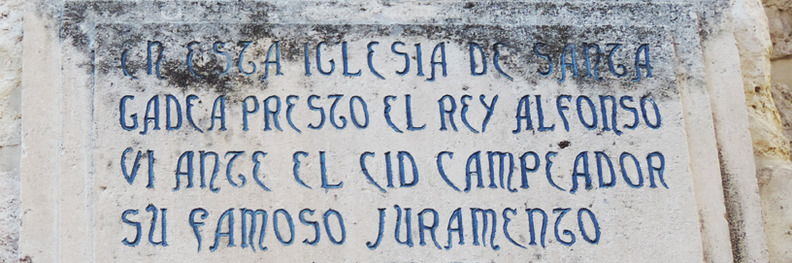 EN ESTA IGLESIA DE SANTA
GADEA PRESTO EL REY ALFONSO
VI ANTE EL CID CAMPEADOR
SU FAMOSO JURAMENTO